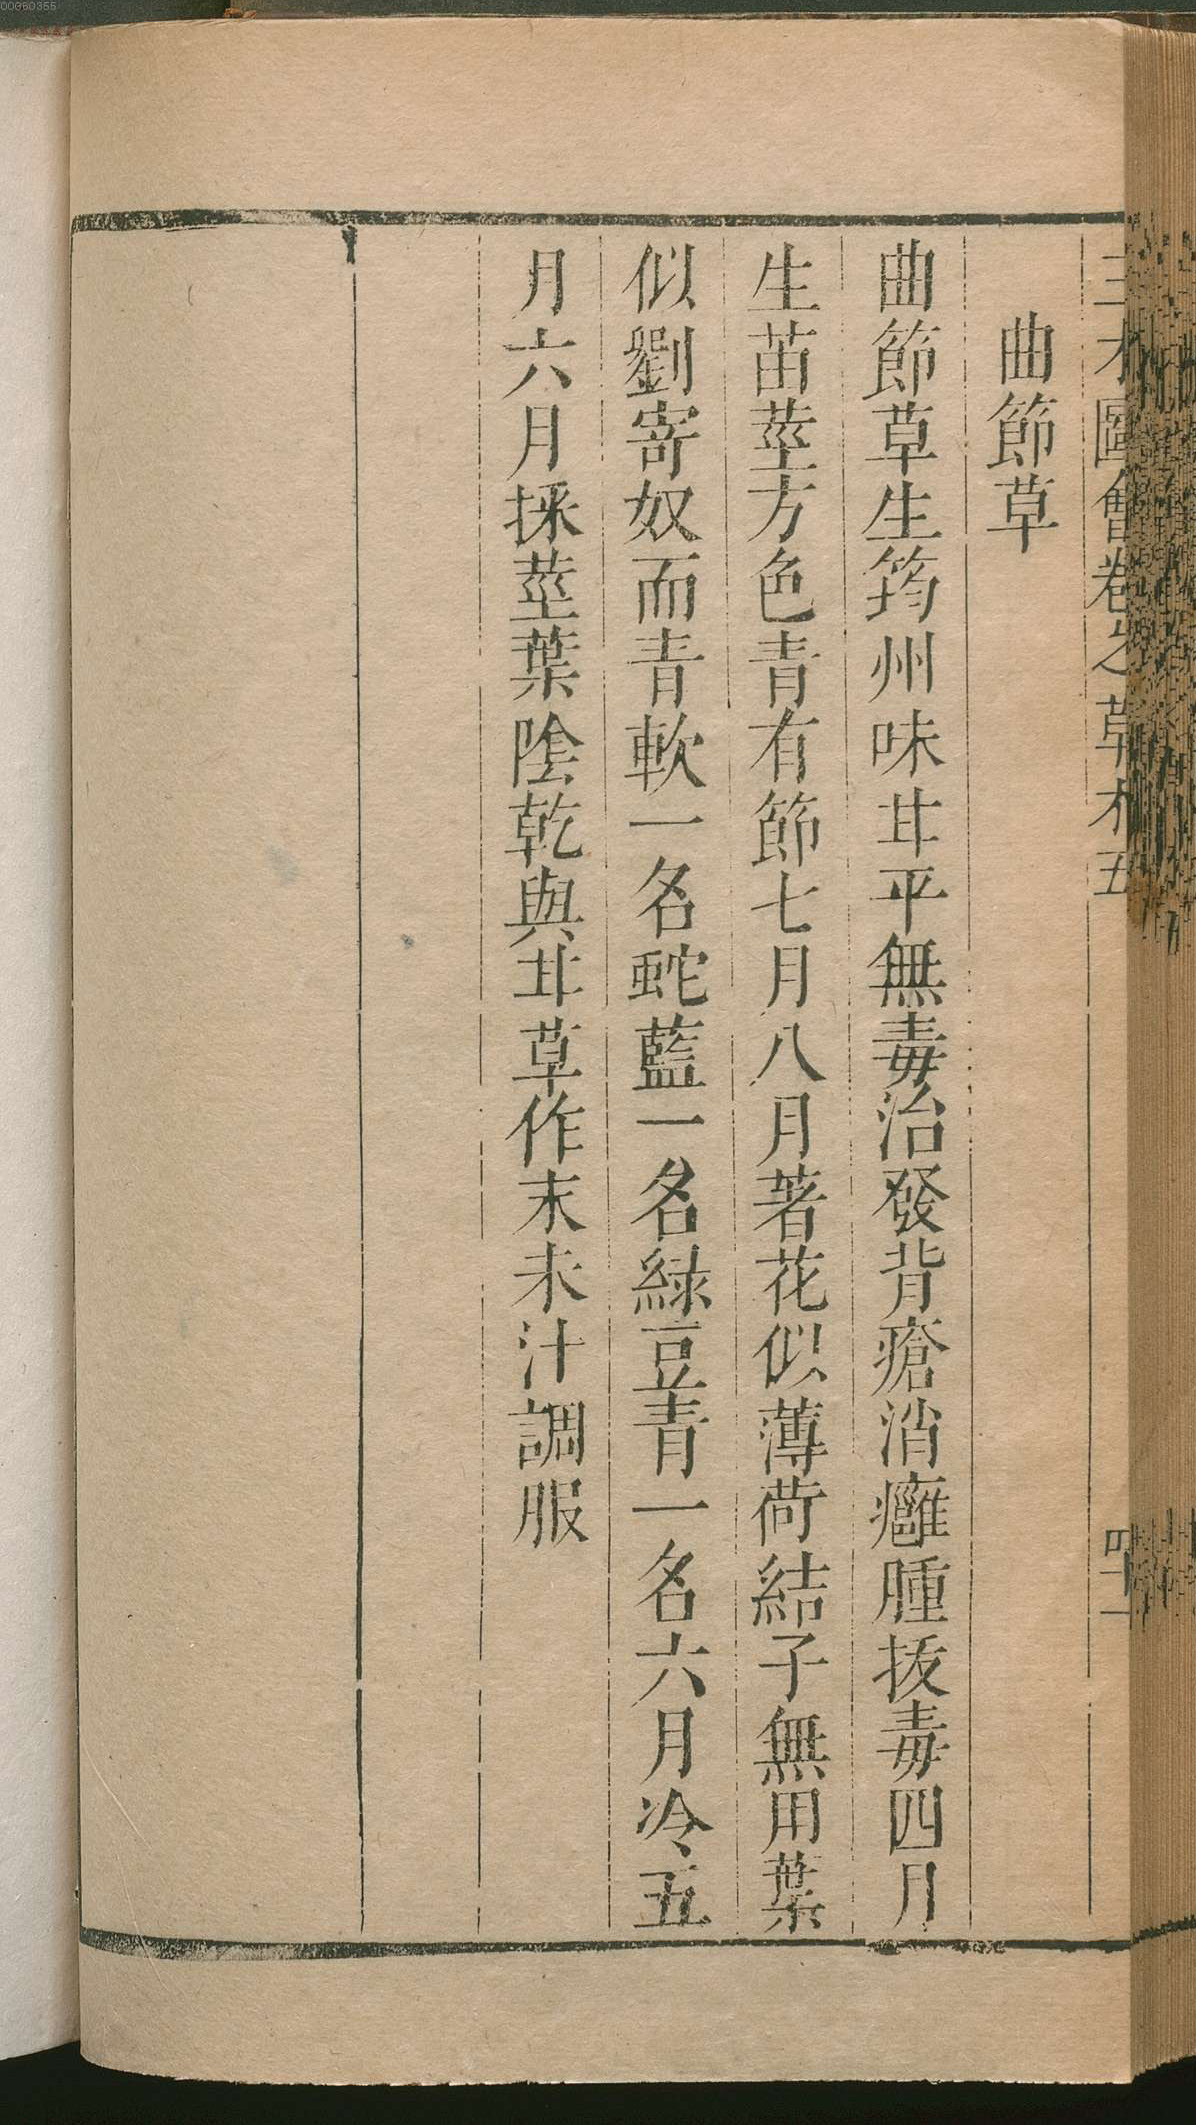 三才圖會卷之草木五
四十一
曲節草
曲節草生筠州味甘平無毒治發背瘡消癰腫拔毒四月
生苗莖方色青有節七月八月著花似薄荷結子無用葉
似劉寄奴而青軟一名蛇藍一名綠豆青一名六月冷五
月六月採莖葉陰乾與甘草作末米汁調服
00060355